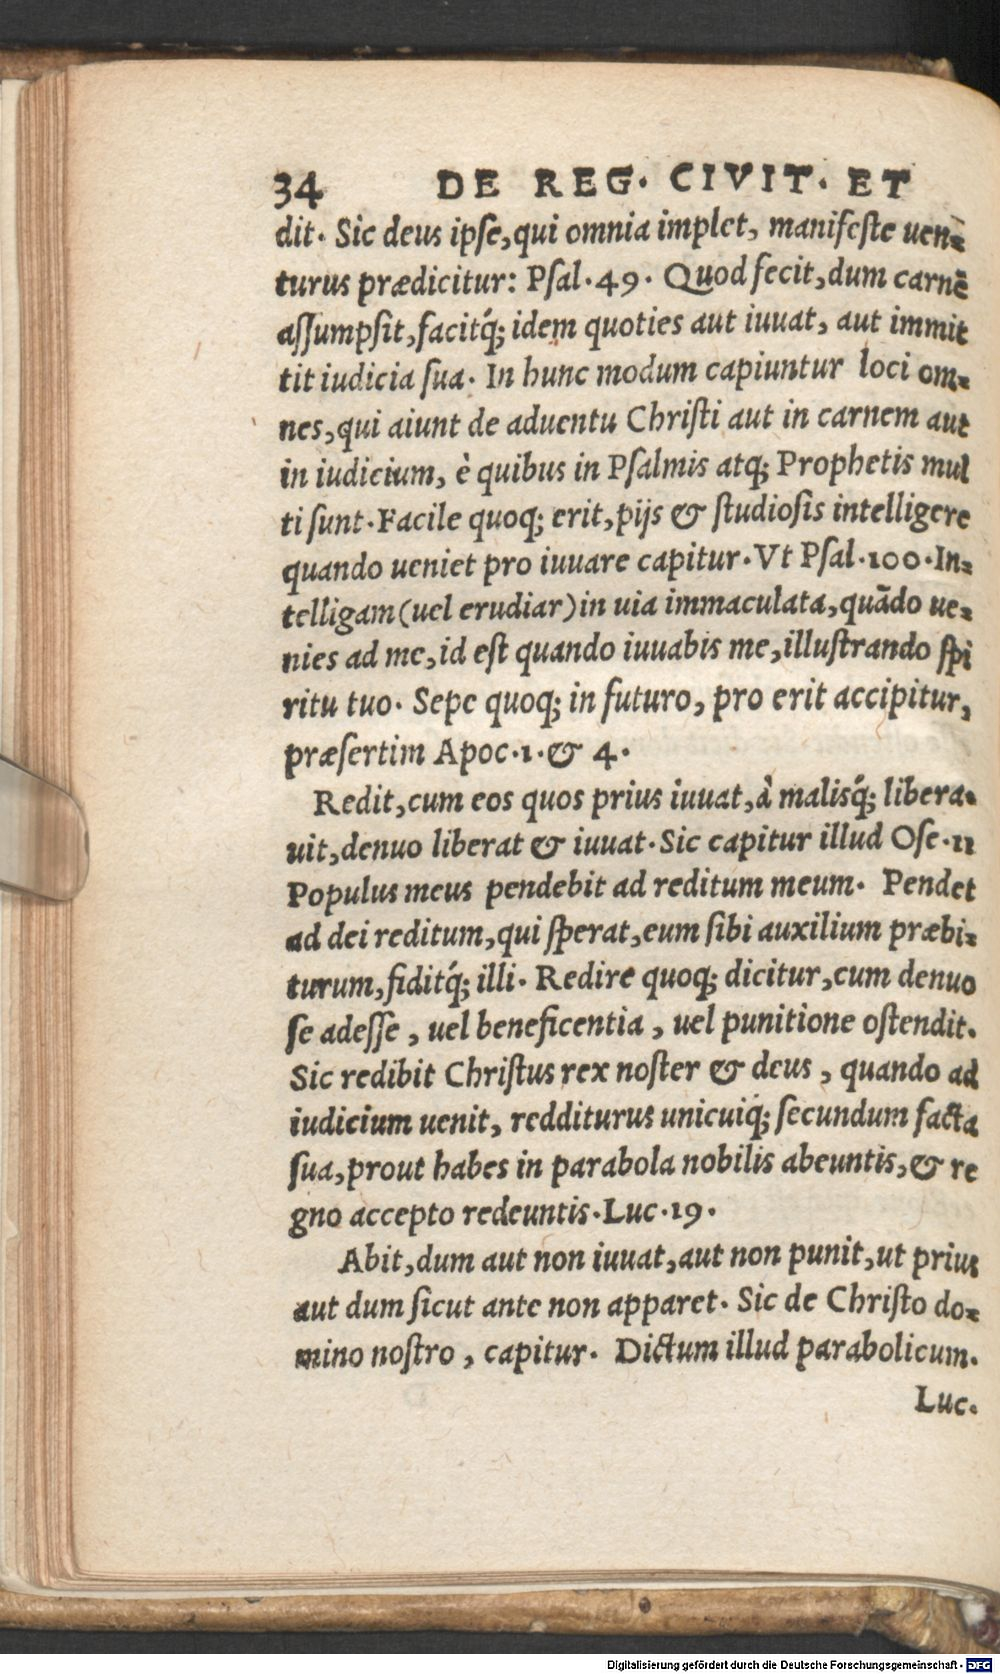 34 DE REG. CIVIT. ET
dit. Sic deus ipſe, qui omnia implet, manifeſte uen⸗
turus prædicitur: Pſal. 49. Quod fecit, dum carnē
aſſumpſit, facitq́; idem quoties aut iuuat, aut immit
tit iudicia ſua. In hunc modum capiuntur loci om⸗
nes, qui aiunt de aduentu Chriſti aut in carnem aut
in iudicium, è quibus in Pſalmis atq; Prophetis mul
ti ſunt. Facile quoq; erit, pijs & ſtudioſis intelligere
quando ueniet pro iuuare capitur. Vt Pſal. 100. In⸗
telligam (uel erudiar) in uia immaculata, quādo ue⸗
nies ad me, id eſt quando iuuabis me, illuſtrando ſpi
ritu tuo. Sepe quoq; in futuro, pro erit accipitur,
præſertim Apoc. 1. & 4.
Redit, cum eos quos prius iuuat, à malisq́; libera⸗
uit, denuo liberat & iuuat. Sic capitur illud Oſe. 11
Populus meus pendebit ad reditum meum. Pendet
ad dei reditum, qui ſperat, eum ſibi auxilium præbi⸗
turum, fiditq́; illi. Redire quoq; dicitur, cum denuo
ſe adeſſe, uel beneficentia, uel punitione oſtendit.
Sic redibit Chriſtus rex noſter & deus, quando ad
iudicium uenit, redditurus unicuiq; ſecundum facta
ſua, prout habes in parabola nobilis abeuntis, & re
gno accepto redeuntis. Luc. 19.
Abit, dum aut non iuuat, aut non punit, ut prius
aut dum ſicut ante non apparet. Sic de Chriſto do⸗
mino noſtro, capitur. Dictum illud parabolicum.
Luc.
Digitalisierung gefördert durch die Deutsche Forschungsgemeinschaft - DFG